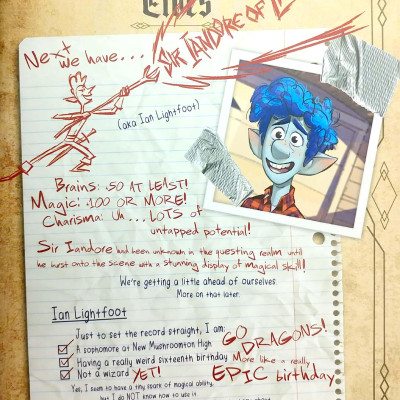 Elves
Next we have...
SIR IANDORE OF
(aka Ian Lightfoot)
Brains: 50 AT LEAST!
Magic: 100 OR MORE!
Charisma: Uh...LOTS of
untapped potential!
Sir Iandore had been unknown in the questing realm until
he burst onto the scene with a stunning display of magical skill!
We're getting a little ahead of ourselves.
More on that later.
Ian Lightfoot
Just to set the record straight, I am:
A sophomore at New Mushroomton High GO DRAGONS!
Having a really weird sixteenth birthday More like a really
Not a wizard YET! EPIC birthday
Yes, I seem to have a tiny spark of magical ability,
but I do NOT know now to use it